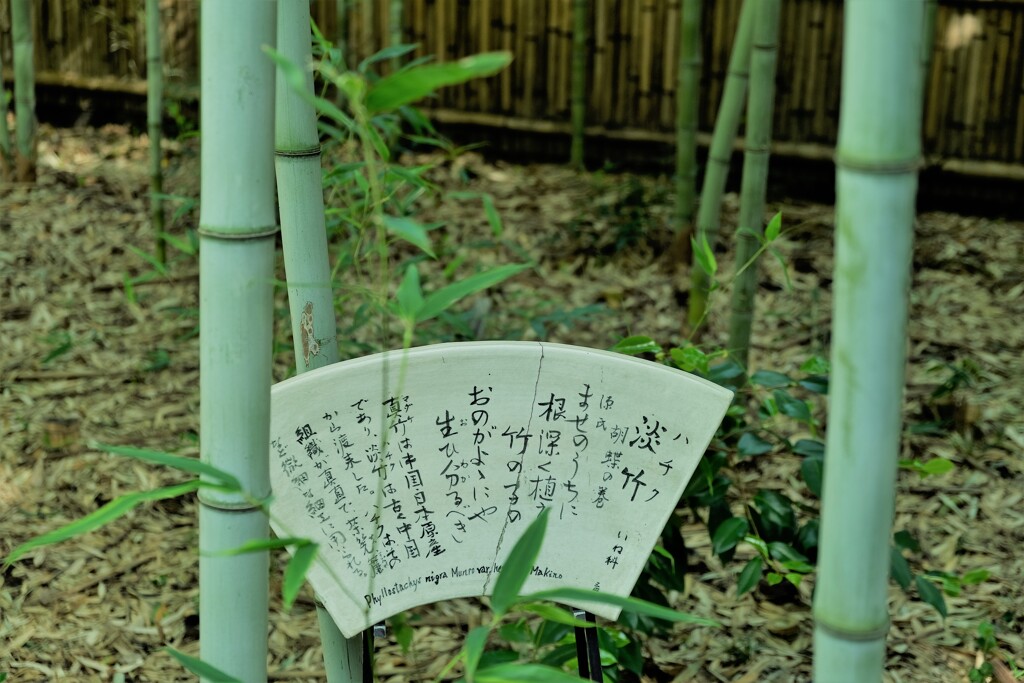 ハチク
淡竹
いね科
源氏 胡蝶の巻
ませのうちに
根深く植ゑ
竹の子の
おのがよゝにや
生ひ分るべき
真竹は中国日本原産
であり、淡竹は古く中国
から渡来した。ハチクはその
組織が真直で、茶筅
など徴細な細工に用いれる。
Phyllostachys nigra Munro var. he Makino